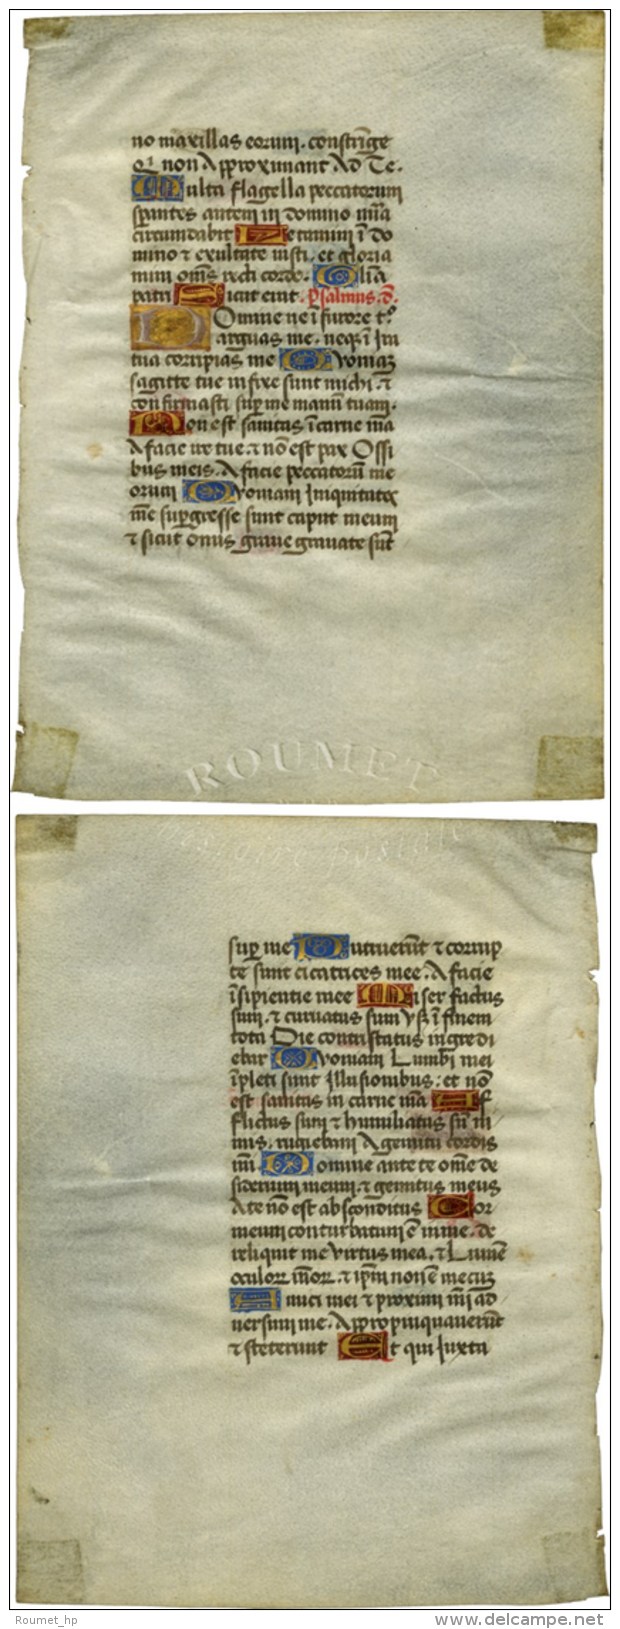 no maxillas eorum. constringe
Qi non Approximant Ad Te.
Multa flagella peccatorum
sperantes autem in domino mīa
circumdabit Letamini ī do
mino & exultate iusti. et gloria
mini omēs recti corde. Glīa
patri Sicut erat. psalmus. d.
Domine ne ī furore t.o
arguas me. neqz ī Ira
tua corripias me Quoniaz
sagitte tue infixe sunt michi. &
confirmasti sup me manū tuam.
Non est sanitas ī carne mēa
A facie ire tue. & nō est pax Ossi
bus meis. A facie peccatorū me
orum Quoniam Iniquitates
mēe supgresse sunt caput meum
& sicut onus graue grauate sūt
ROUMET
Histoire Postale
sup me Putruerūt & corrup
te sunt cicatrices mee. A facie
īsipientie mee Miser factus
sum. & curuatus sum vsqz ī finem
tota Die contristatus ingredi
ebar Quoniam Lumbi mei
īpleti sunt Illusionibus. et nō
est sanitas in carne mēa Af
flictus sum & humiliatus sū ni
mis. rugiebam A gemitu cordis
mēi. Domine ante te omē de
siderium meum. & gemitus meus
A te nō est absconditus Cor
meum conturbatum ē in me. de
reliquit me virtus mea. & Lumē
oculorz meorz. & ipm non ē mecuz
Amici mei & proximi mēi ad
uersum me. Appropinquauerūt
& steterunt Et qui Iuxta
Roumet_hp
delcampe.net